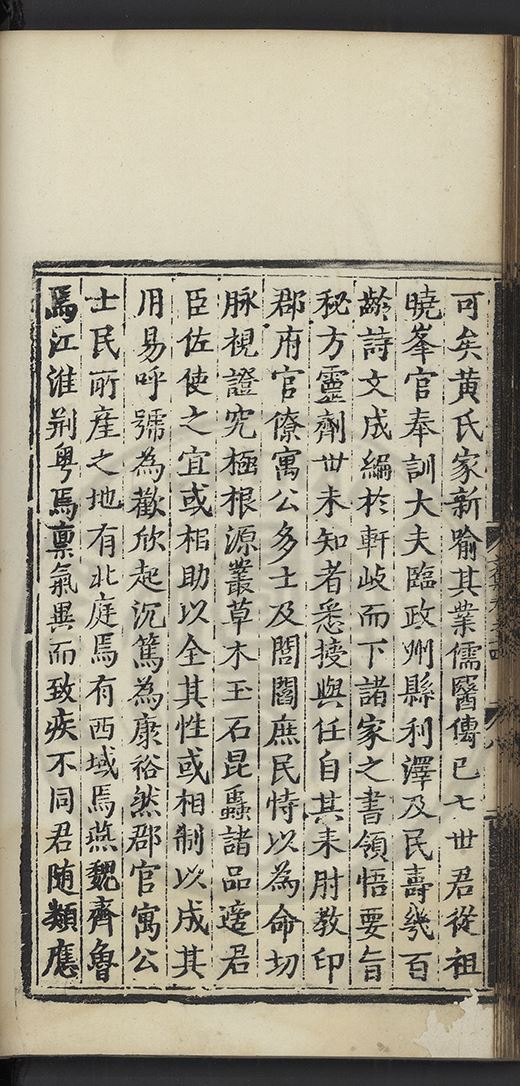 可矣黄氏家新喻其業儒醫傳已七世君從祖
曉峯官奉訓大夫臨政州縣利澤及民壽幾百
齡詩文成編於軒岐而下諸家之書領悟要旨
秘方靈劑世未知者悉授與任自其來肘教印
郡府官僚寓公多士及閭閻庶民恃以為命切
脉視證究極根源叢草木玉石昆蟲諸品適君
臣佐使之宜或相助以全其性或相制以成其
用易呼號為歡欣起沉篤為康裕然郡官寓公
士民所產之地有北庭焉有西域焉燕魏齊魯
焉江淮荆粤焉禀氣異而致疾不同君随類應